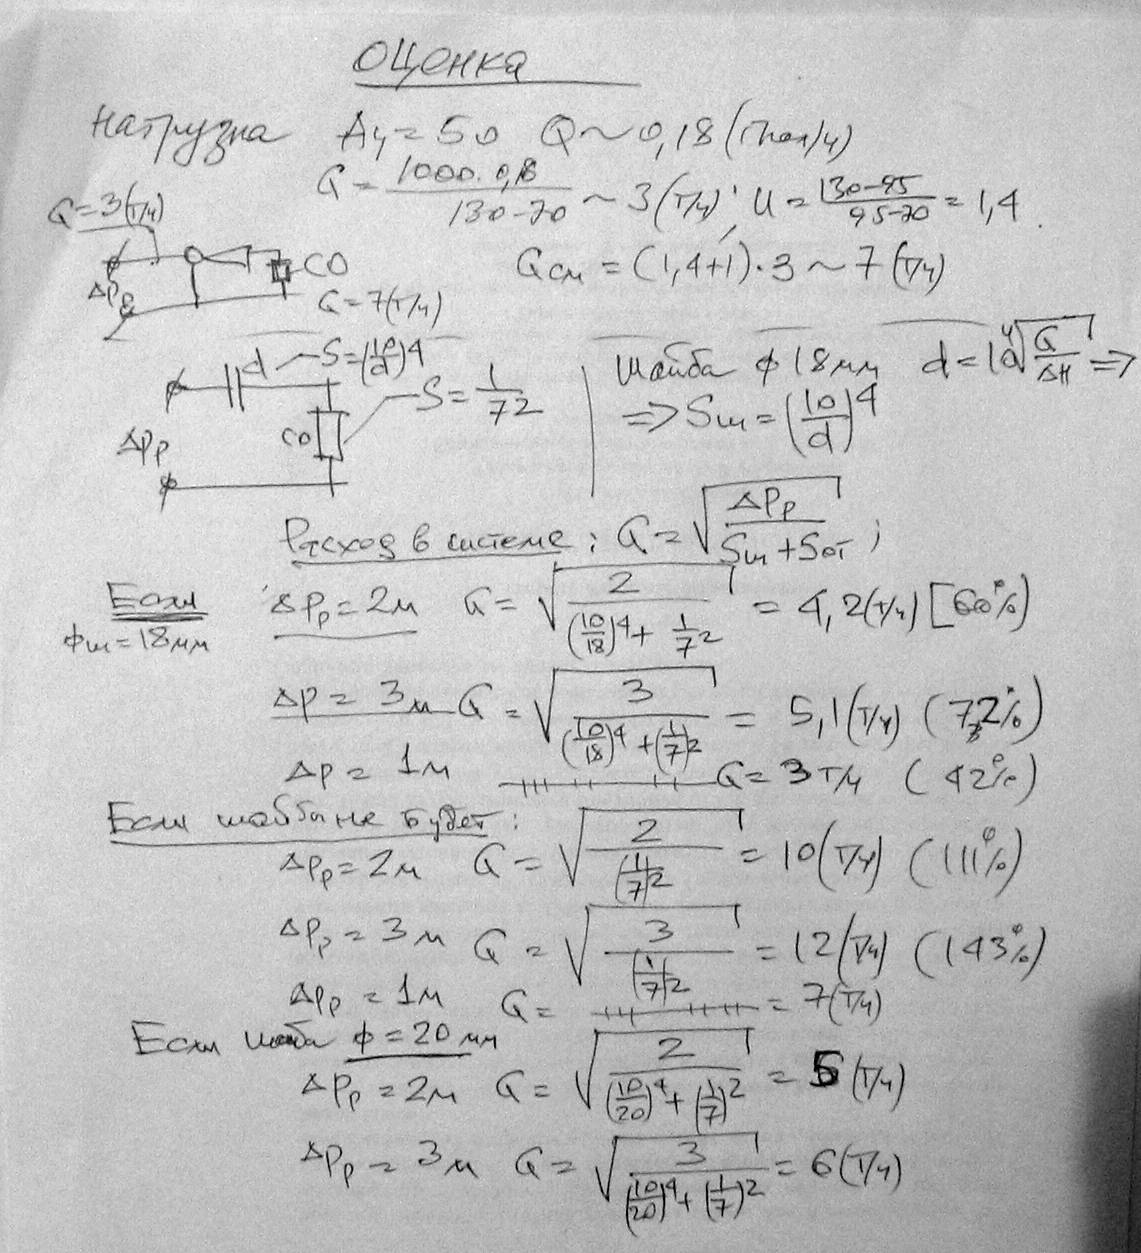 ОЦЕНКА
Нагрузка Ду = 50 Q ~ 0,18 (Гкал/ч)
G = 1000·0,18 / 130-70 ~ 3 (т/ч) ; U = 130-95 / 95-70 = 1,4
G = 3 (т/ч)
CO
ΔPp
Gсм = (1,4+1)·3 ~ 7 (т/ч)
G = 7 (т/ч)
d S = (10/d)^4
Шайба ф 18 мм d = 10 ⁴√(G/ΔH) =>
S = 1/7^2
=> Sш = (10/d)^4
CO
ΔPp
Расход в системе: G = √(ΔPp / Sш + Sот) ;
Если ΔPp = 2м G = √(2 / (10/18)^4 + 1/7^2) = 4,2 (т/ч) [60%)
фш = 18 мм
ΔP = 3м G = √(3 / (10/18)^4 + (1/7)^2) = 5,1 (т/ч) (72%)
ΔP = 1м G = 3 т/ч (42%)
Если шайбы не будет:
ΔPp = 2м G = √(2 / (1/7)^2) = 10 (т/ч) (111%)
ΔPp = 3м G = √(3 / (1/7)^2) = 12 (т/ч) (143%)
ΔPp = 1м G = = 7 (т/ч)
Если шайба ф = 20 мм
ΔPp = 2м G = √(2 / (10/20)^4 + (1/7)^2) = 5 (т/ч)
ΔPp = 3м G = √(3 / (10/20)^4 + (1/7)^2) = 6 (т/ч)